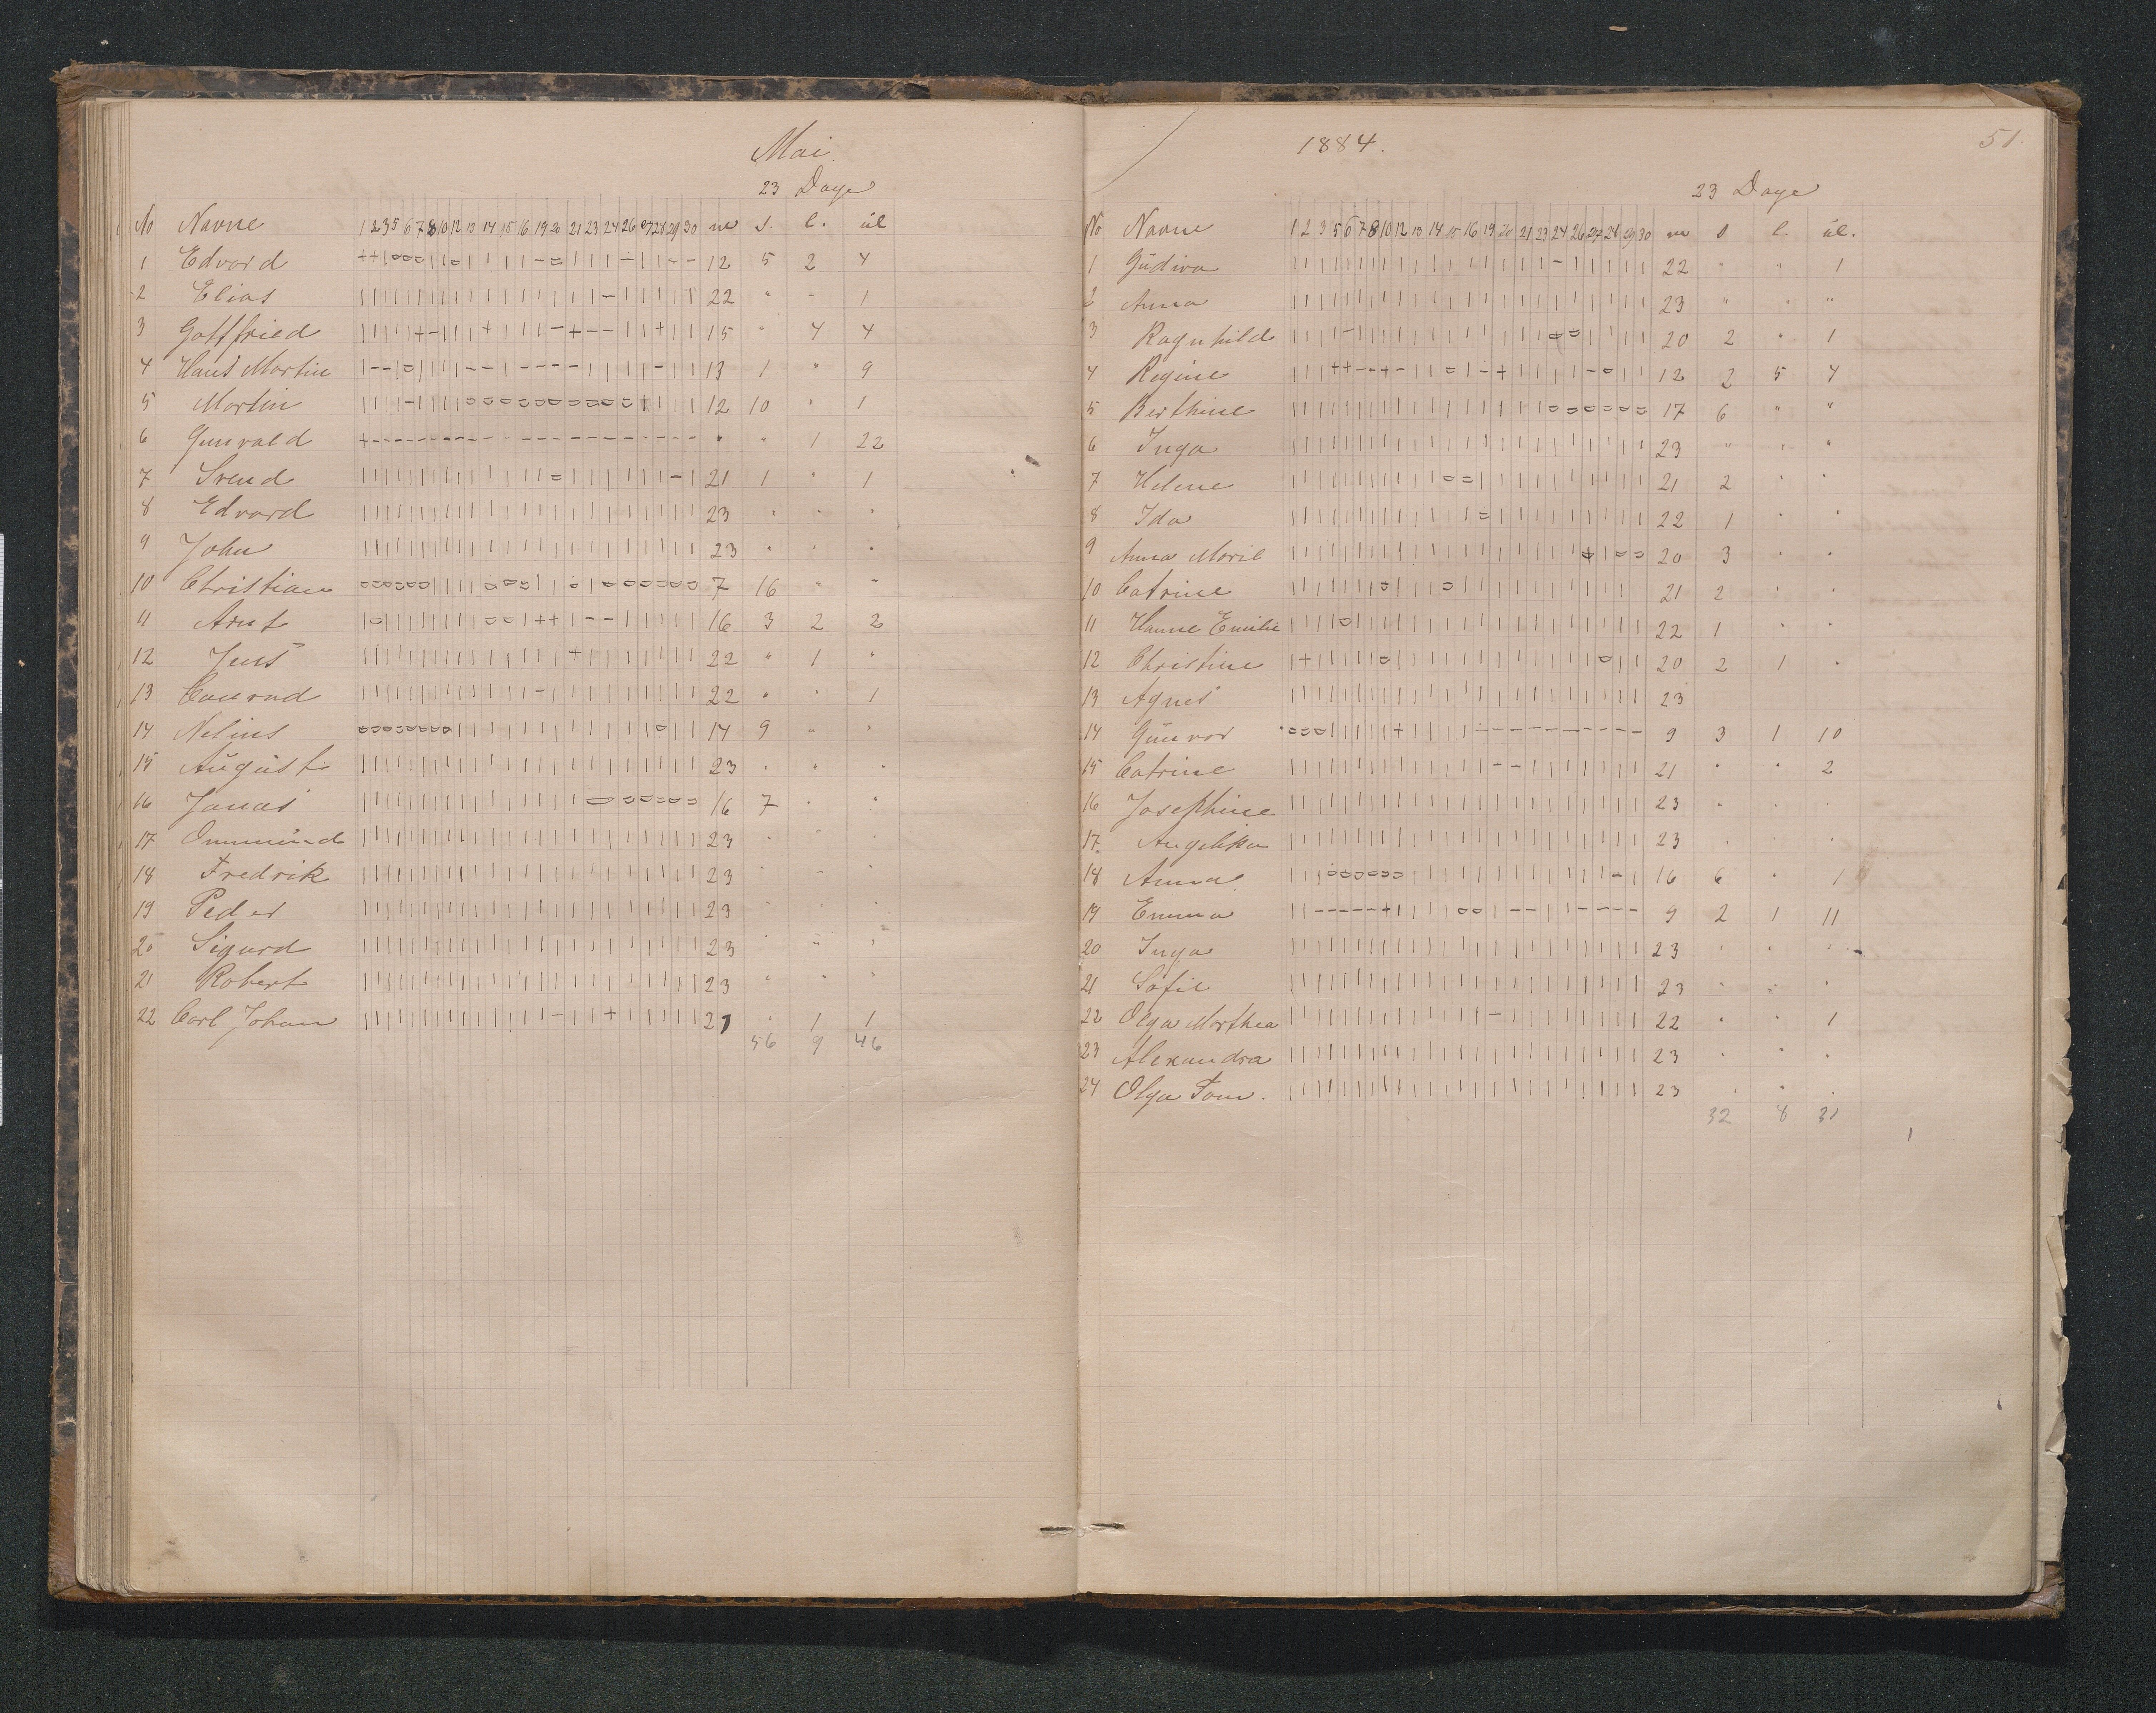 Mai
23 Dage
No Navne 1 2 3 5 6 7 8 10 12 13 14 15 16 19 20 21 23 24 26 27 28 29 30 m s. l. ul
1 Edvard 12 5 2 4
2 Elias 22 " - 1
3 Gottfried 15 " 4 4
4 Hans Martin 13 1 " 9
5 Martin 12 10 " 1
6 Gunvald " " 1 22
7 Svend 21 1 " 1
8 Edvard 23 " " "
9 John 23 " " "
10 Christian 7 16 " "
11 Arnt 16 3 2 2
12 Jens 22 " 1 "
13 Conrad 22 " " 1
14 Nelius 14 9 " "
15 August 23 " " "
16 Jonas 16 7 " "
17 Ommund 23 " " "
18 Fredrik 23 " " "
19 Peder 23 " " "
20 Sigurd 23 " " "
21 Robert 23 " " "
22 Carl Johan 21 " 1 1
56 9 46
1884.
51.
23 Dage
No Navne 1 2 3 5 6 7 8 10 12 13 14 15 16 19 20 21 23 24 26 27 28 29 30 m s l. ul.
1 Gudiva 22 " " 1
2 Anna 23 " " "
3 Ragnhild 20 2 " 1
4 Regine 12 2 5 4
5 Berthine 17 6 " "
6 Inga 23 " " "
7 Helene 21 2 " "
8 Ida 22 1 " "
9 Anna Marie 20 3 " "
10 Catrine 21 2 " "
11 Hanne Emilie 22 1 " "
12 Christine 20 2 1 "
13 Agnes 23
14 Gunvor 9 3 1 10
15 Catrine 21 " " 2
16 Josephine 23 " " "
17. Angelika 23 " " "
18 Anna 16 6 " 1
19 Emma 9 2 1 11
20 Inga 23 " " "
21 Sofie 23 " " "
22 Olga Marthea 22 " " 1
23 Alexandra 23 " " "
24 Olga Tom. 23 " " "
32 8 31